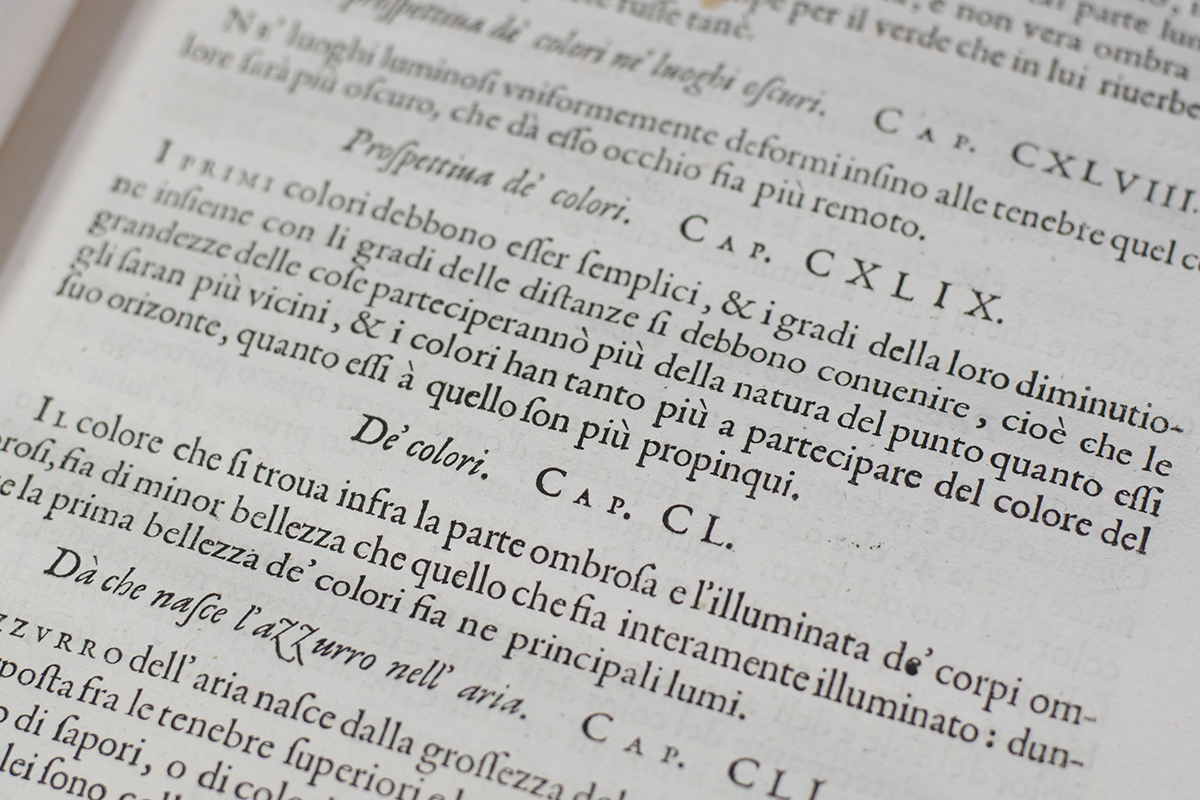 tal parte lu
, e non vera ombra
pe per il verde che in lui riuerbe
te fusse tanè.
Prospettiua de' colori ne' luoghi oscuri. CAP. CXLVIII.
NE' luoghi luminosi vniformemente deformi insino alle tenebre quel co
lore sarà più oscuro, che dà esso occhio fia più remoto.
Prospettiua de' colori. CAP. CXLIX.
I PRIMI colori debbono esser semplici, & i gradi della loro diminutio-
ne insieme con li gradi delle distanze si debbono conuenire, cioè che le
grandezze delle cose parteciperannò più della natura del punto quanto essi
gli saran più vicini, & i colori han tanto più a partecipare del colore del
suo orizonte, quanto essi à quello son più propinqui.
De' colori. CAP. CL.
IL colore che si troua infra la parte ombrosa e l'illuminata de' corpi om-
brosi, fia di minor bellezza che quello che fia interamente illuminato: dun-
e la prima bellezza de' colori fia ne principali lumi.
Dà che nasce l'azzurro nell' aria. CAP. CLI.
ZZVRRO dell'aria nasce dalla grossezza del
posta fra le tenebre superiori e l
o di sapori, o di colo
lei sono